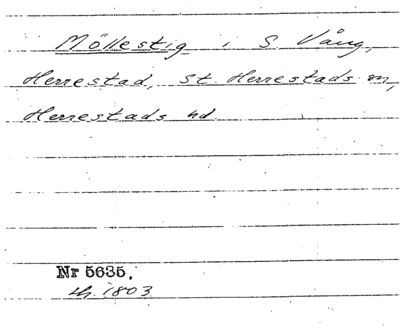 Möllestig i S. Vång,
Herrestad, St. Herrestads sn,
Herrestads hd.
Nr 5635.
LH. 1803